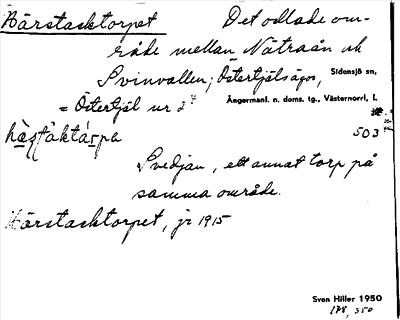 Härstacktorpet Det odlade om-
råde mellan Nätraån och
Svinvallen; Östertjälsägor, Sidensjö sn,
= Östertjäl nr 2 Ångermanl. n. doms. tg., Västernorrl. l.
503
Svedjan, ett annat torp på
samma område.
Härstacktorpet, jr 1915
Sven Hiller 1950
178, 350